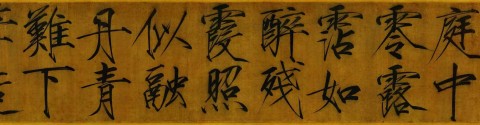 庭中
零露
霑如
醉残
霞照
似融
丹青
難下